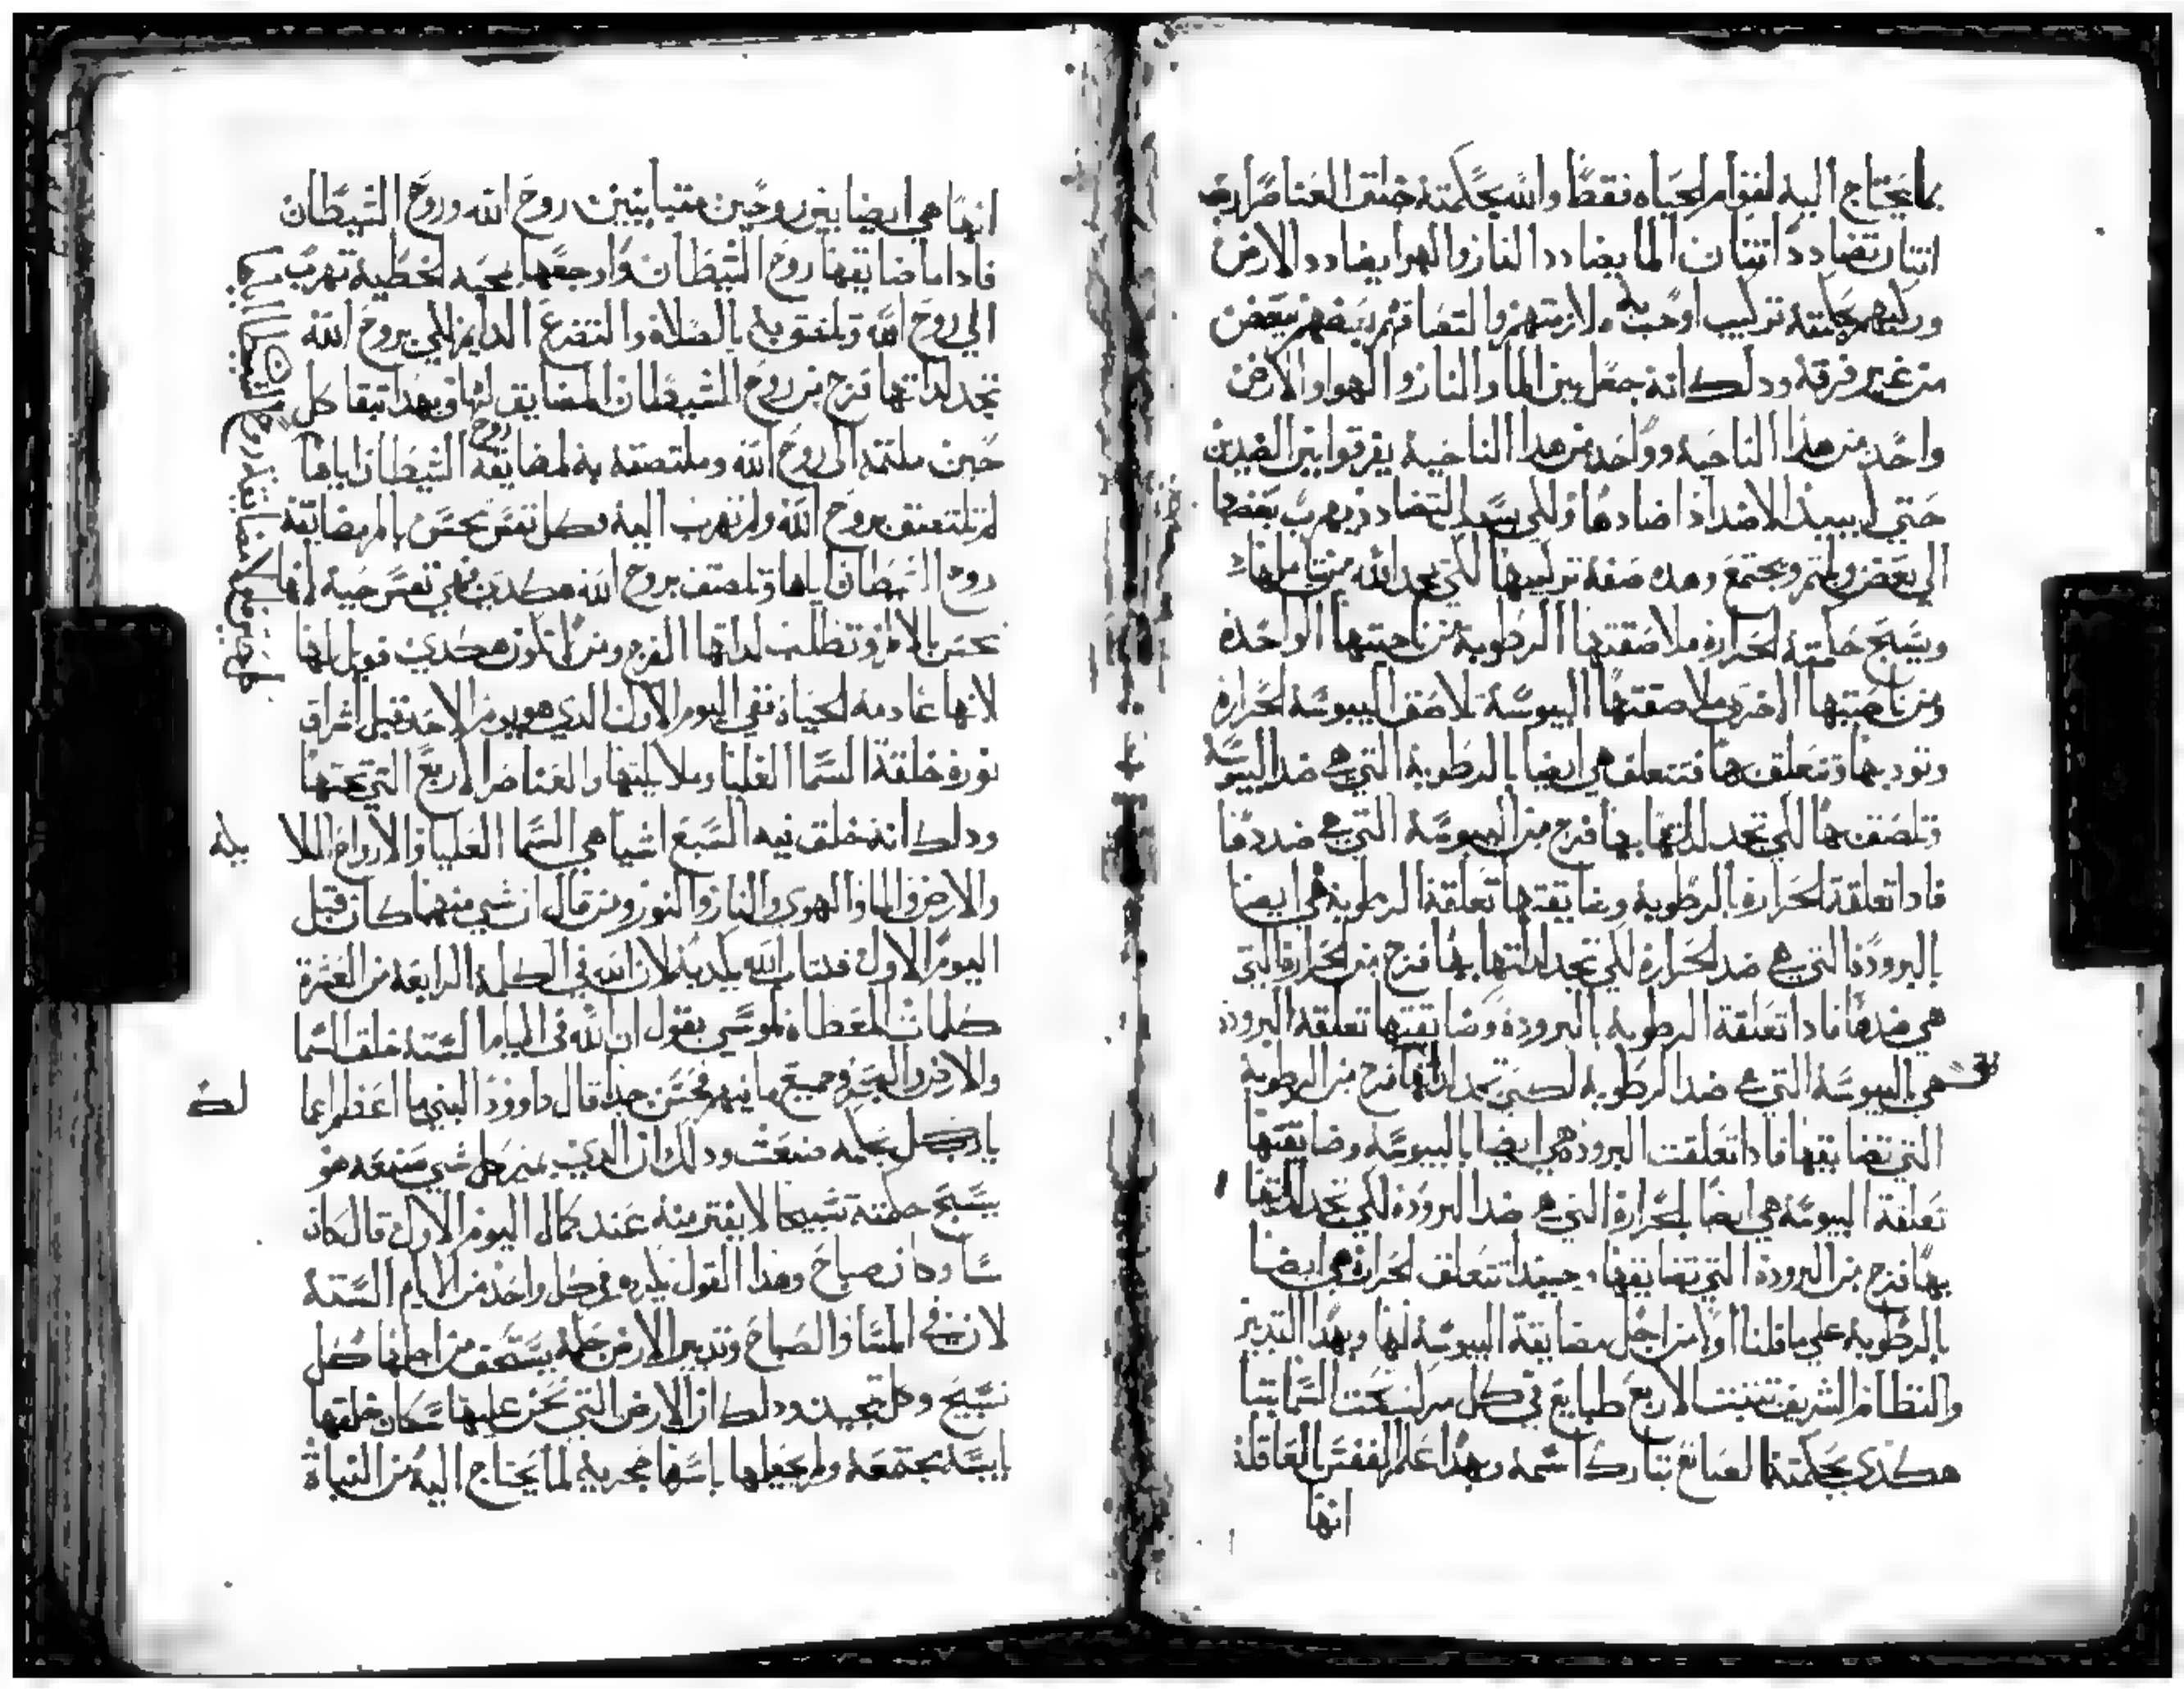 بما يحتاج اليه لقوام الحياه فقط والله بحكمته خلق العناصر اربعه
اتنان تضادد اتنان الما يضادد النار والهوا يضادد الارض
وركبهم بحكمته تركيب اوجب ملازمتهم والتصاقهم بعضهم ببعض
من غير فرقة ودلك انه جعل بين الما والنار والهوا والارض
واحد من هذا الناحيه وواحد من هدا الناحية يفرقوا بين الضدين
حتى لا يبيد الاضداد اضادها ولكي بسبب التضادد يهرب بعضها
الى بعض ويلتم ويجتمع وهده صفة تركيبها لكي يمجد الله من يتاملها
ويسبح حكمته الحرارة ملاصقتها الرطوبة من ناحيتها الواحدة
ومن ناحيتها الاخرى ملاصقتها اليبوسة تلاصق اليبوسة الحرارة
وتوديها وتتعلق بها فتتعلق هي ايضا بالرطوبة التي هي ضد اليبوسة
وتلصق بها لكي تجد لداتها بها فرج من اليبوسة التي هي ضددها
فادا تعلقة الحرارة بالرطوبة وضايقتها تعلقة الرطوبة هي ايضا
بالبرودة التي هي ضد الحرارة لكي تجد لداتها بها فرج من الحرارة التي
هي ضدها فادا تعلقة الرطوبة بالبرودة وضايقتها تعلقة البرودة
هي باليبوسة التي هي ضد الرطوبة لكي تجد لداتها فرج من الرطوبة
التي تضايقها فادا تعلقت البرودة هي ايضا باليبوسة وضايقتها
تعلقة اليبوسة هي ايضا بالحرارة التي هي ضد البرودة لكي تجد لداتها
بها فرج من البرودة التي تضايقها وحينيد تتعلق الحرارة هي ايضا
بالرطوبة على ما قلنا اولا من اجل مضايقة اليبوسة لها وبهدا التدبير
والنظام الشريف تتبت الاربع طبايع في كل من تحت السما
هكدى بحكمة الصانع تبارك اسمه وبهدا علم النفس العاقلة
انها
انها هي ايضا بين روحين متباينين روح الله وروح الشيطان
فادا ما ضايقها روح الشيطان واوجعها بمحبة الخطية تهرب
الى روح الله وتلتصق به بالصلاه والتضرع الدايم لكي بروح الله
تجد لداتها فرج من روح الشيطان المضايق لها وبهدا تبقا كل
حين ملتمه الى روح الله وملتصقة به لمضايقة روح الشيطان اياها
لم تلتصق بروح الله ولم تهرب اليه وكل نفس تحس بالم مضايقة
روح الشيطان اياها وتلصق بروح الله هكدى فهي نفس حية
تحس بالالم وتطلب لداتها الفرج ومن لا تكون هكدى فويل لها
لانها عادمة الحياة ففي اليوم الاول الدي هو يوم الاحد قبل اشراق
نوره خلقة السما العليا وملايكتها والعناصر الاربع التي تحتها
ودلك انه خلق فيه السبع اشيا هي السما العليا والارواح الملا
والارض والما والهوى والنار والنور ومن قال ان شي منهما كان قبل
اليوم الاول فكتاب الله يكدبه لان الله في الكلمة الرابعة من العشرة
كلمات المعطاه لموسي يقول ان الله في الايام الستة خلق السما
والارض والبحر وجميع ما فيهم فحسن جدا قال داوود النبي ما اعظم اعما
يا رب كل بحكمه صنعت ودلك ان الدي يميز كل شي صنعه هو
يسبح حكمته تسبيحا لا يفتر منه عند كمال اليوم الاول قال كان
مسا وكان صباح وهذا القول يكرره في كل واحد من الايام الستة
لان في المسا والصباح وتدبير الارض حكمة يستحق من اجلها كل
تسبيح وكل تمجيد ودلك ان الارض التي نحن عليها كان خلقها
يابسه مجتمعة ولم يجعلها باسرها مجريه لما يحتاج اليه من النباة